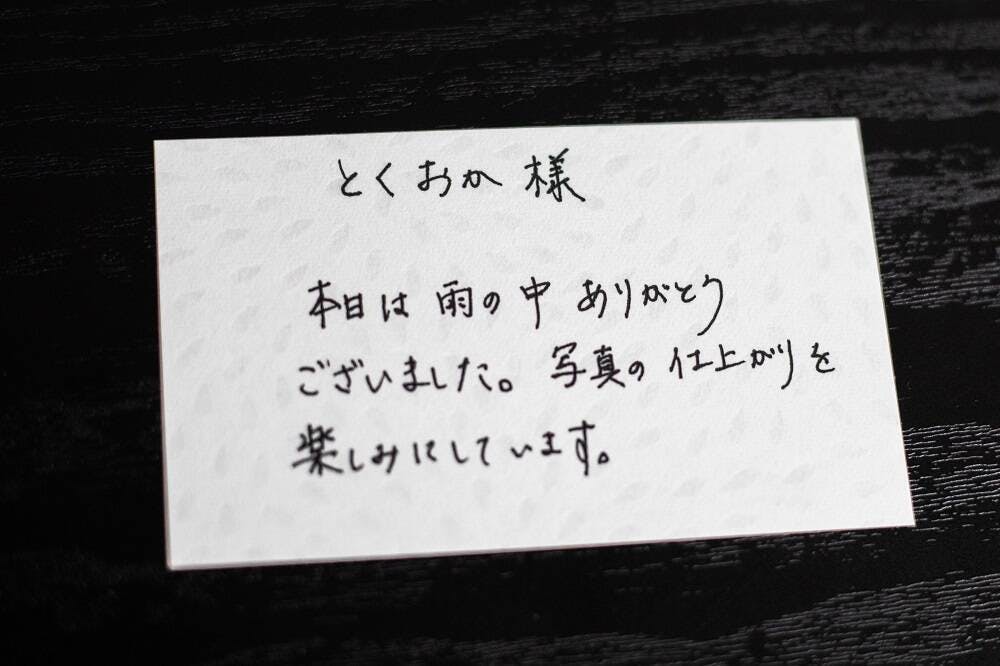 とくおか 様
本日は 雨の中 ありがとう
ございました。写真の 仕上がりを
楽しみにしています。